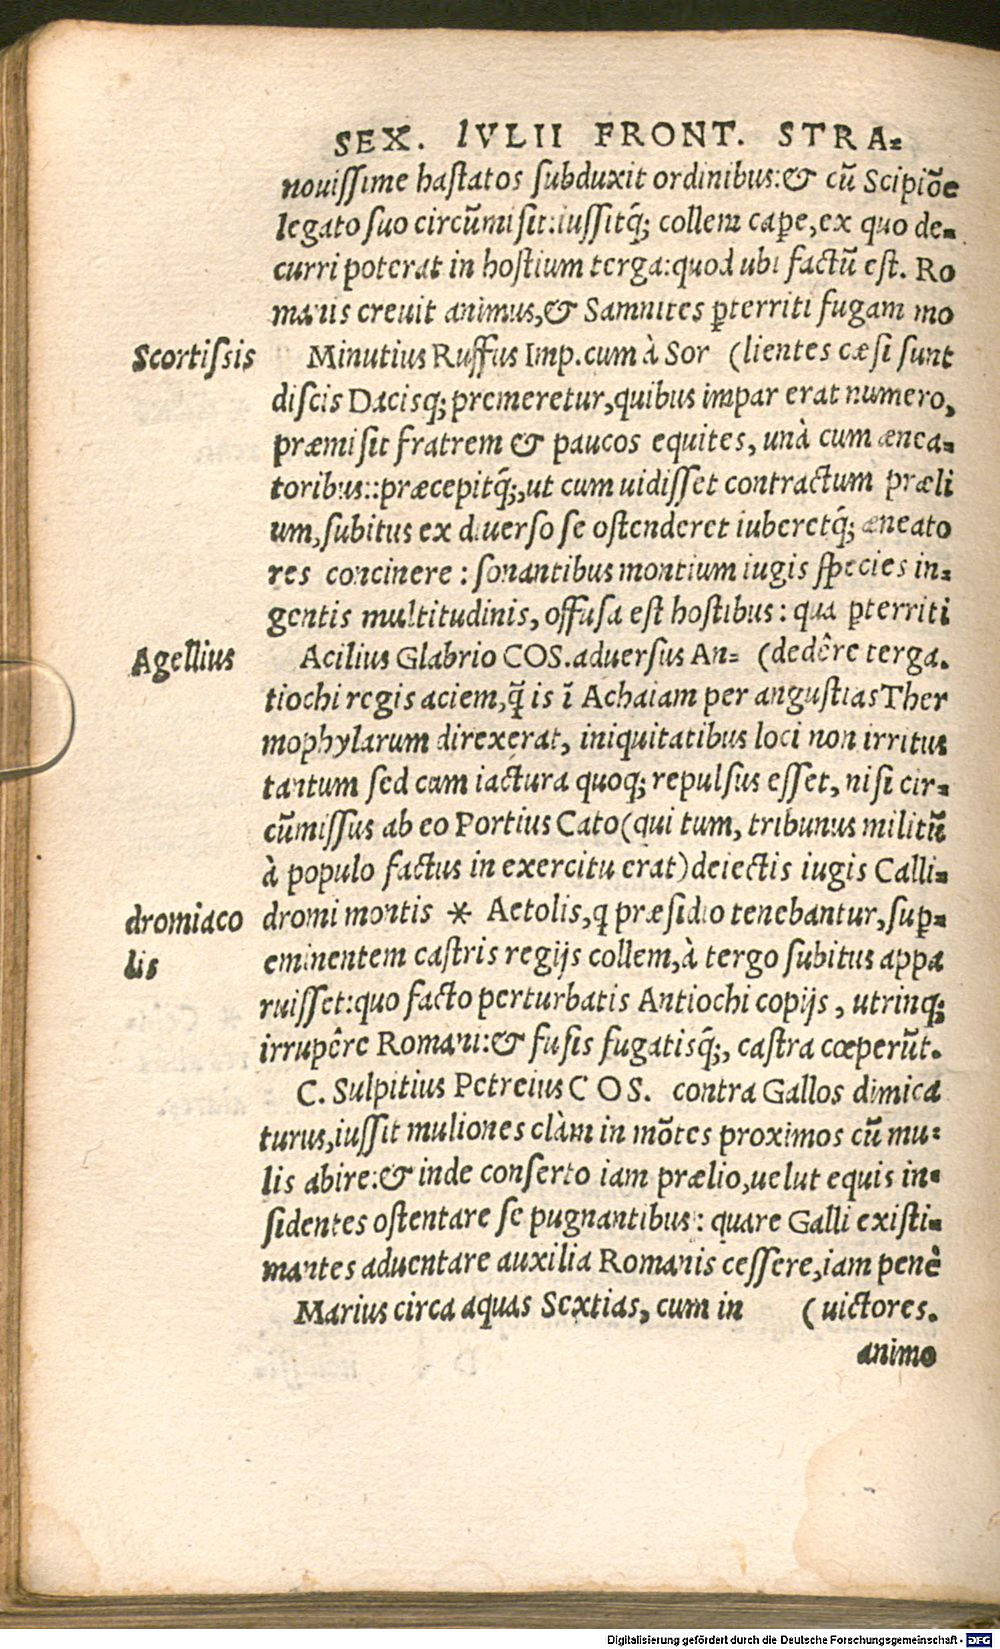 SEX. IVLII FRONT. STRA-
nouissime hastatos subduxit ordinibus:& cū Scipiōe
legato suo circūmisit:iussitq̃; collem cape,ex quo de-
curri poterat in hostium terga:quod ubi factū est. Ro
manis creuit animus,& Samnites p̱territi fugam mo
Scortissis Minutius Ruffus Imp.cum à Sor (lientes cæsi sunt
discis Dacisq; premeretur,quibus impar erat numero,
præmisit fratrem & paucos equites, unà cum ænea-
toribus::præcepitq̃;,ut cum uidisset contractum præli
um,subitus ex diuerso se ostenderet iuberetq̃; æneato
res concinere : sonantibus montium iugis species in-
gentis multitudinis, offusa est hostibus: qua p̱territi
Agellius Acilius Glabrio COS.aduersus An- (dedêre terga.
tiochi regis aciem,q̃ is ī Achaiam per angustias Ther
mophylarum direxerat, iniquitatibus loci non irritus
tantum sed cum iactura quoq; repulsus esset, nisi cir-
cūmissus ab eo Portius Cato(qui tum, tribunus militū
à populo factus in exercitu erat)deiectis iugis Calli-
dromiaco dromi montis * Aetolis,q præsidio tenebantur,sup̱-
lis eminentem castris regijs collem,à tergo subitus appa
ruisset:quo facto perturbatis Antiochi copijs , utrinq;
irrupêre Romani:& fusis fugatisq̃;, castra cœperūt.
C. Sulpitius Petreius COS. contra Gallos dimica
turus,iussit muliones clàm in mōtes proximos cū mu-
lis abire:& inde conserto iam prælio,uelut equis in-
sidentes ostentare se pugnantibus: quare Galli existi-
mantes aduentare auxilia Romanis cessere,iam penè
Marius circa aquas Sextias, cum in (uictores.
animo
Digitalisierung gefördert durch die Deutsche Forschungsgemeinschaft - DFG